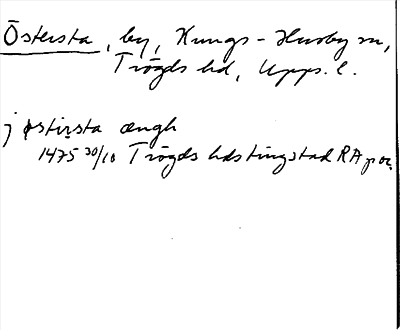 Östersta, by, Kungs-Husby sn,
Trögds hd, Upps. l.
j østirsta ængh
1475 30/10 Trögds hdstingstad RA por.